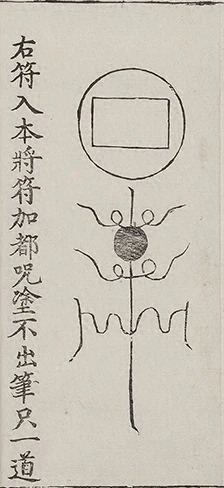 右符入本將符加都呪塗不出筆只一道